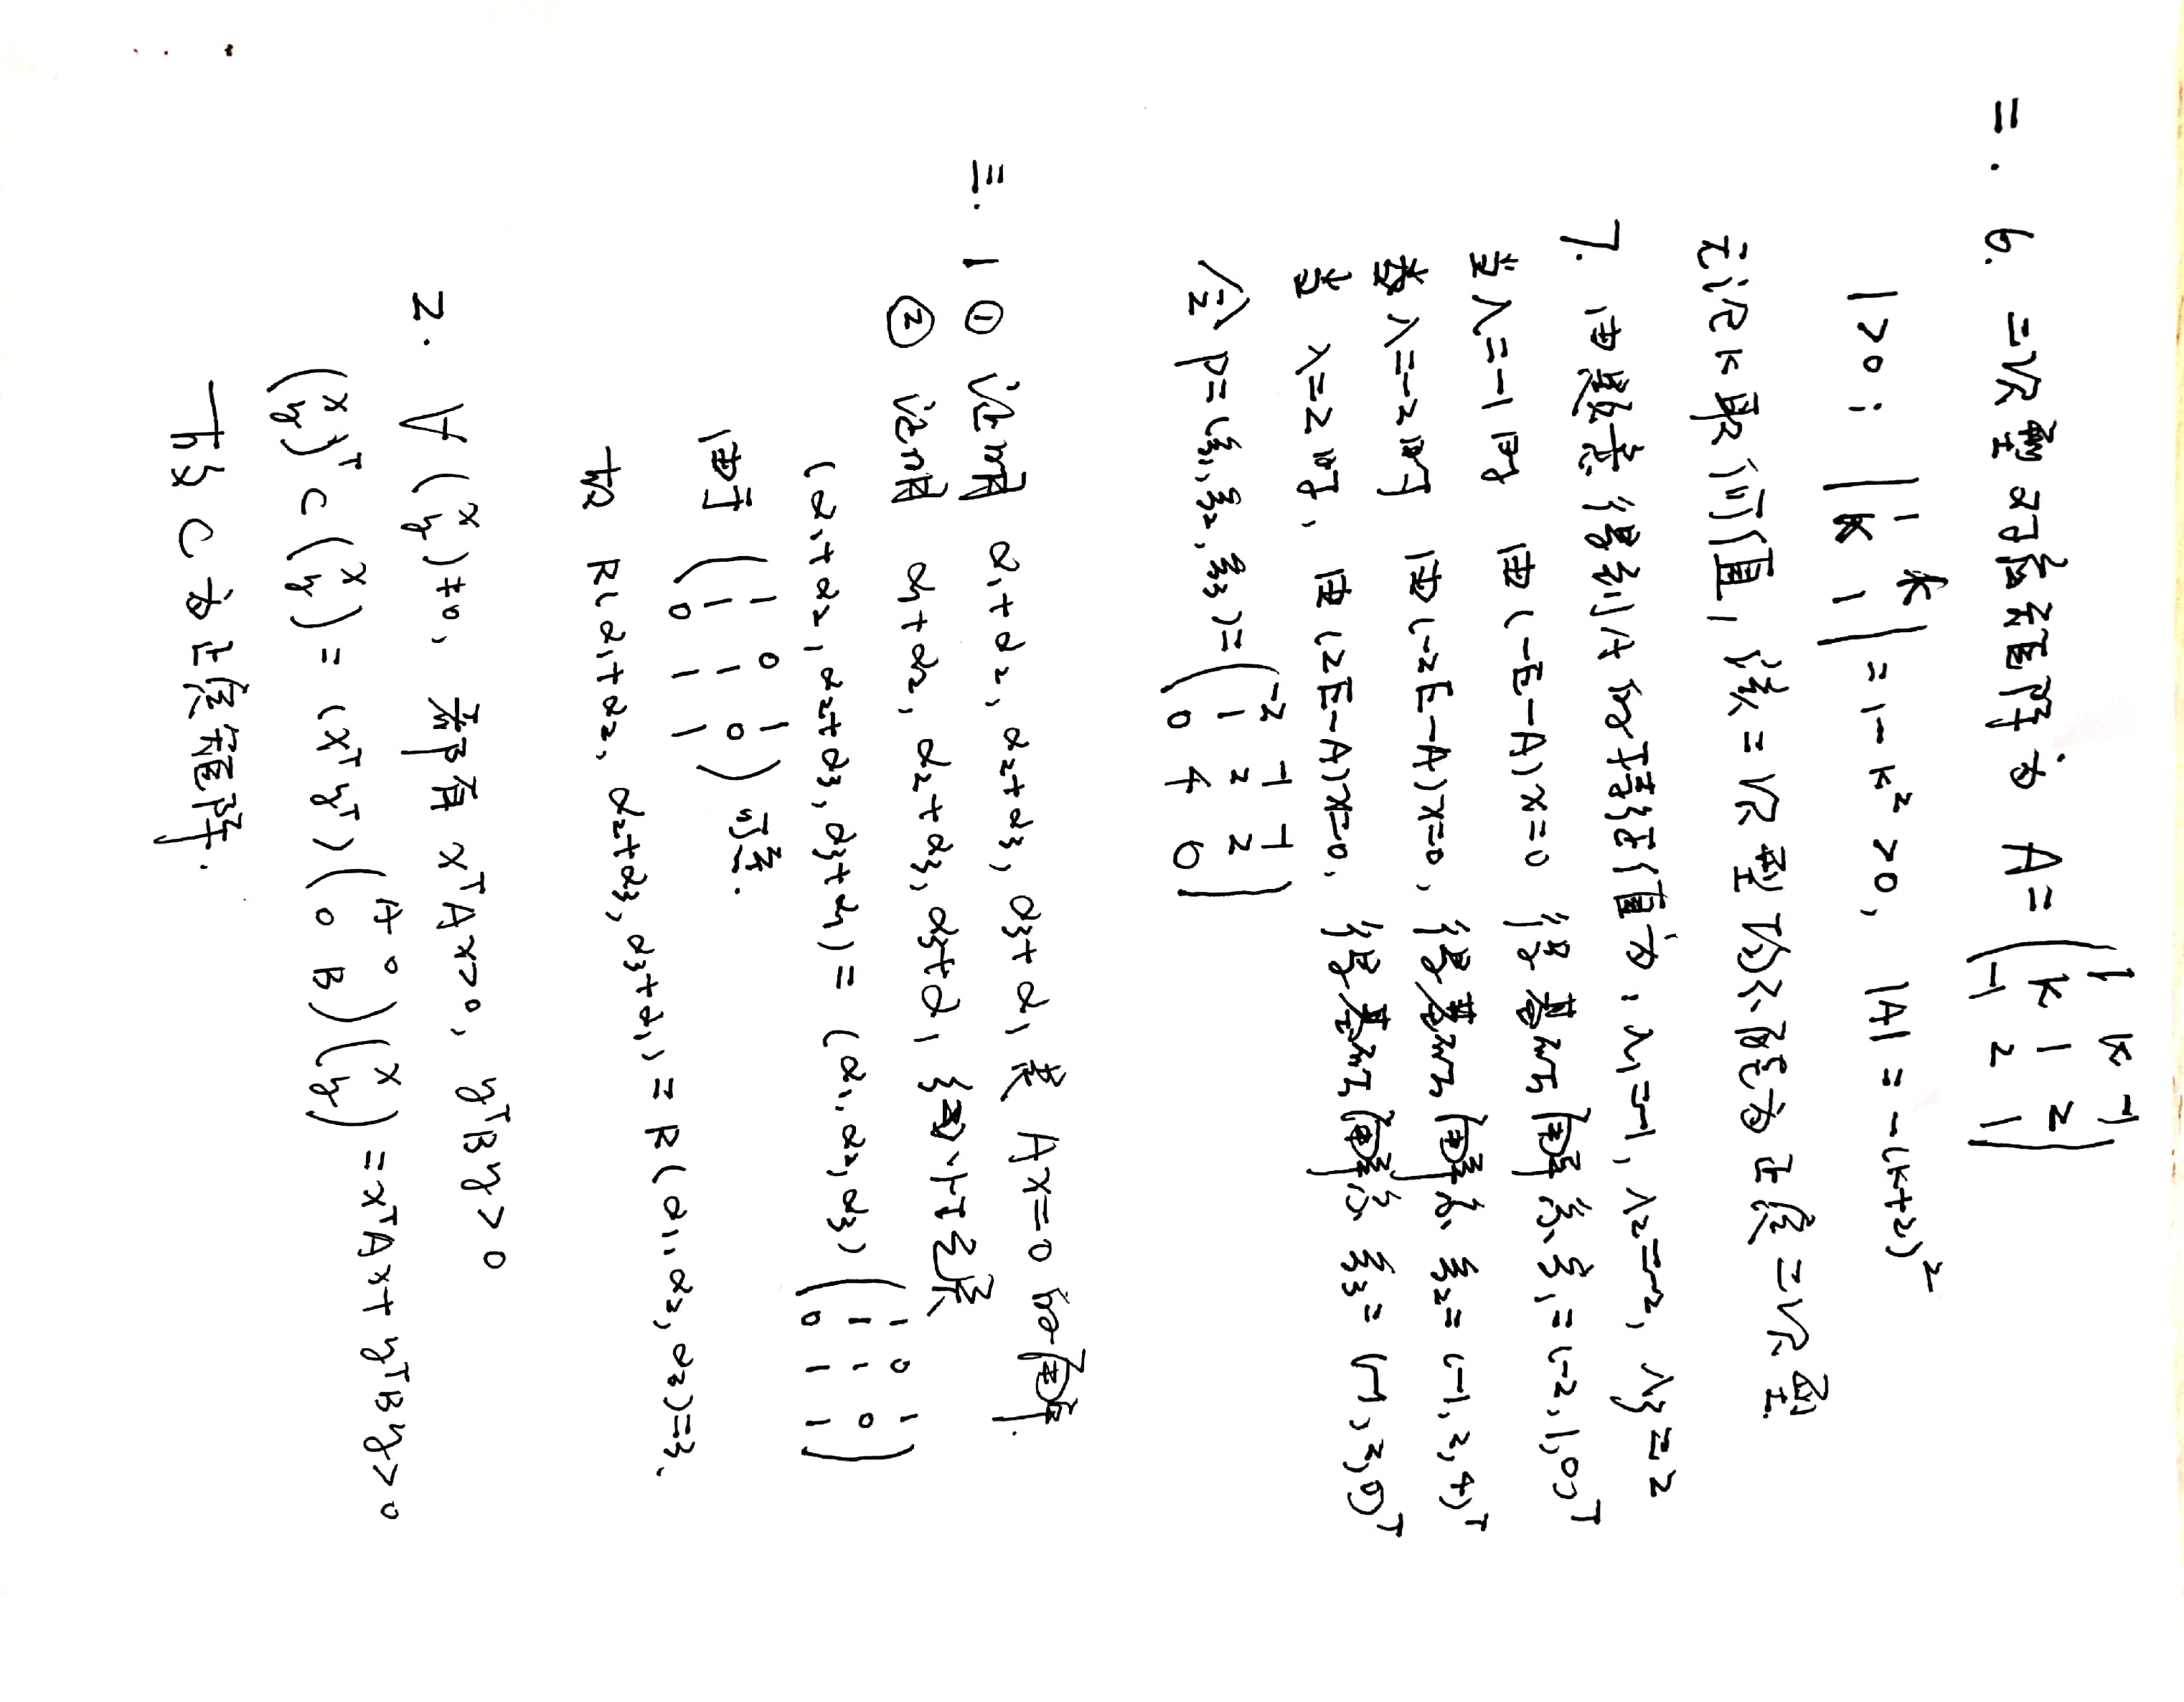 二. 6. 二次型对应矩阵为 A = \begin{pmatrix} 1 & k & -1 \\ k & 1 & 2 \\ -1 & 2 & 1 \end{pmatrix}
1>0; \begin{vmatrix} 1 & k \\ k & 1 \end{vmatrix} = 1-k² >0, |A| = -(k+2)²
无论k取何值, 该二次型均不能为正定二次型.
7. 由题意得到A的特征值为, λ₁=-1, λ₂=-2, λ₃=2
当λ=-1时 由(-E-A)x=0 得基础解系 ξ₁=(-2,1,0)ᵀ
当λ=-2时 由(-2E-A)x=0, 得基础解系 ξ₂=(-1,2,4)ᵀ
当λ=2时, 由(2E-A)x=0, 得基础解系 ξ₃=(-1,2,0)ᵀ
令 P=(ξ₁,ξ₂,ξ₃)= \begin{pmatrix} -2 & -1 & -1 \\ 1 & 2 & 2 \\ 0 & 4 & 0 \end{pmatrix}
三. 1 ① 证明 α₁+α₂, α₂+α₃, α₃+α₁ 是 Ax=0 的解.
② 证明 α₁+α₂, α₂+α₃, α₃+α₁ 线性无关
(α₁+α₂, α₂+α₃, α₃+α₁) = (α₁, α₂, α₃) \begin{pmatrix} 1 & 0 & 1 \\ 1 & 1 & 0 \\ 0 & 1 & 1 \end{pmatrix}
由于 \begin{pmatrix} 1 & 0 & 1 \\ 1 & 1 & 0 \\ 0 & 1 & 1 \end{pmatrix} 可逆.
故 R(α₁+α₂, α₂+α₃, α₃+α₁) = R(α₁, α₂, α₃)=3.
2. ∀ \begin{pmatrix} x \\ y \end{pmatrix} ≠0, 都有 xᵀAx>0, yᵀBy>0
\begin{pmatrix} x \\ y \end{pmatrix}ᵀ C \begin{pmatrix} x \\ y \end{pmatrix} = (xᵀ yᵀ) \begin{pmatrix} A & 0 \\ 0 & B \end{pmatrix} \begin{pmatrix} x \\ y \end{pmatrix} = xᵀAx + yᵀBy>0
故 C 为正定矩阵.